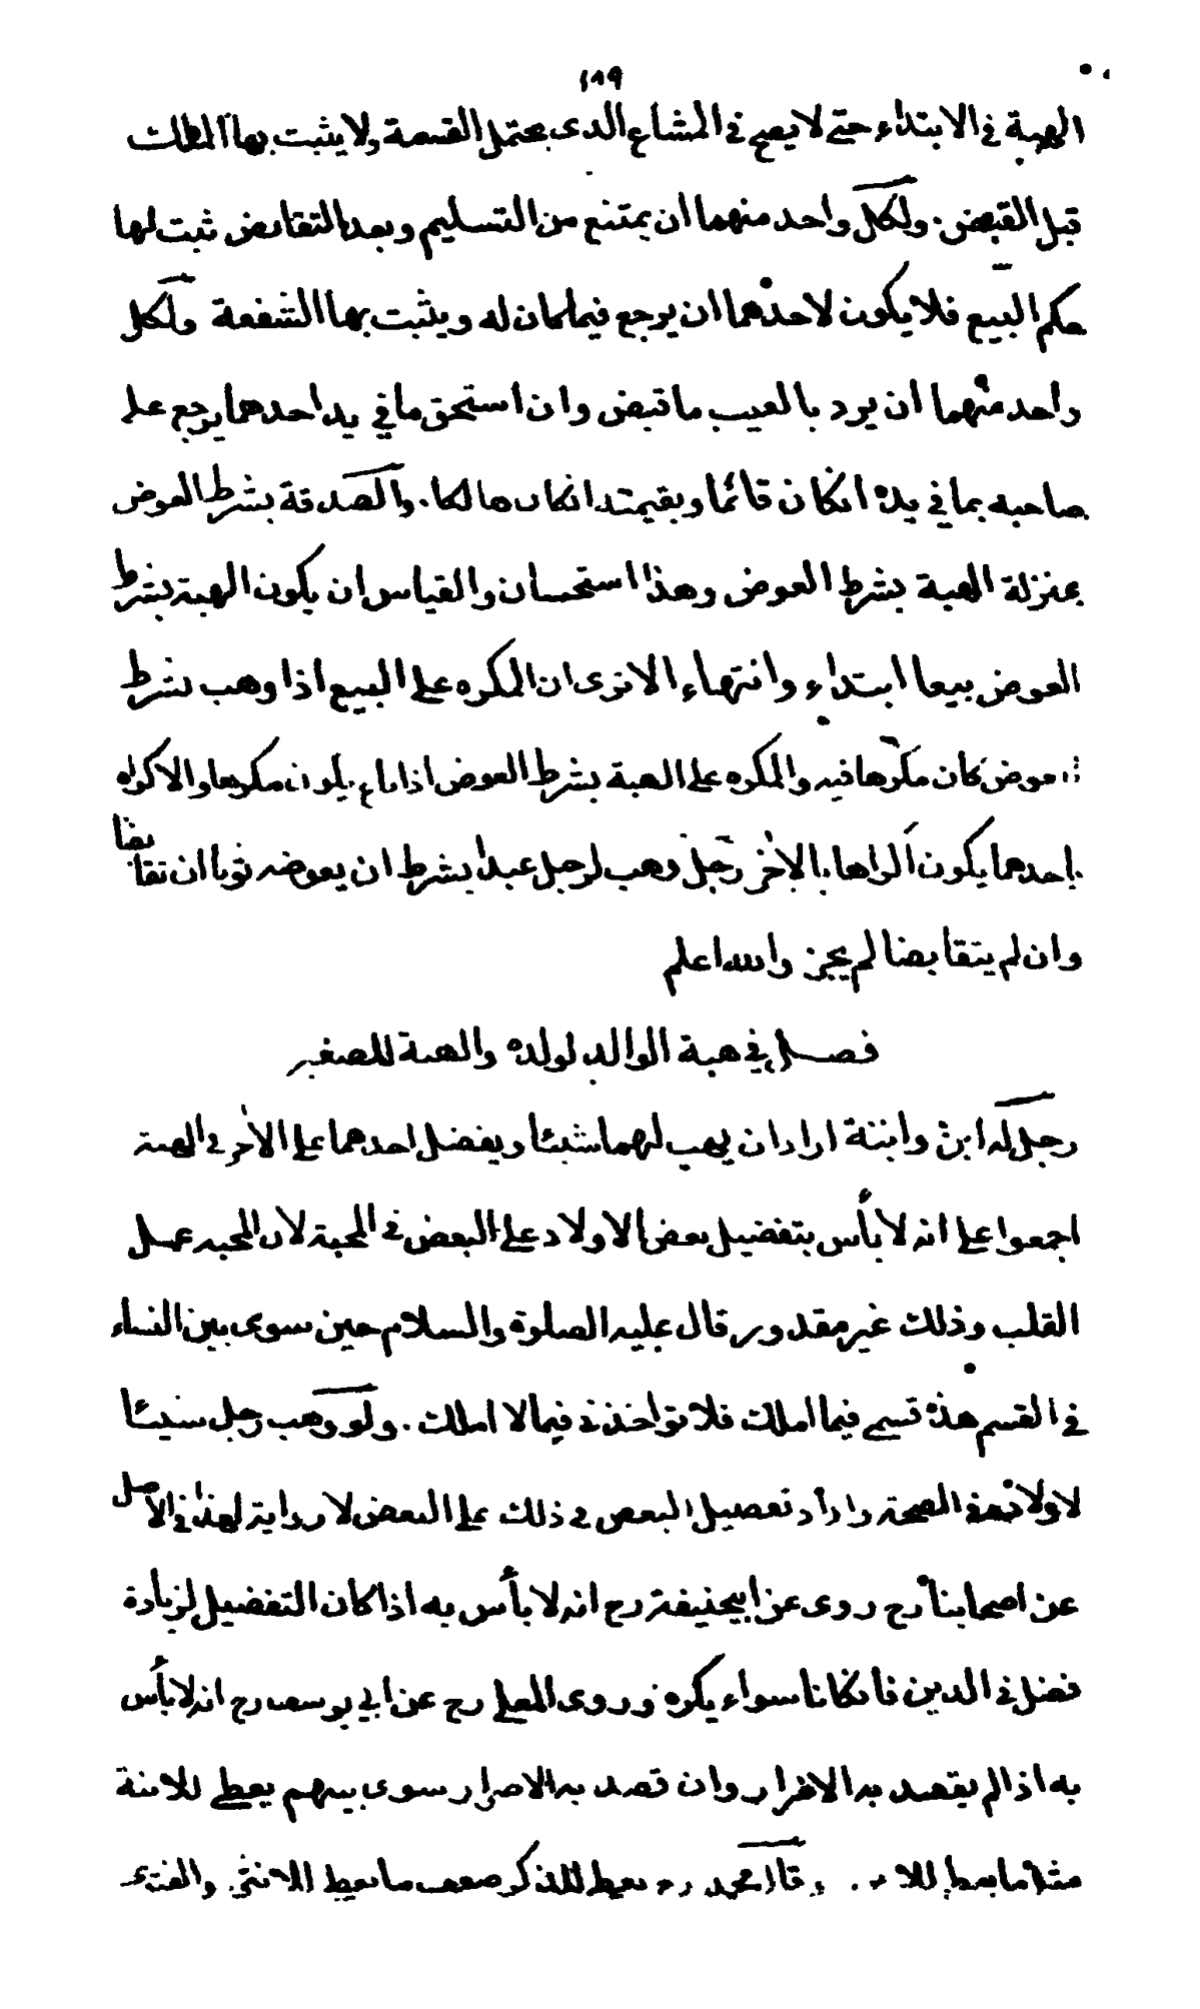 ١٨٩
الهبة في الابتداء حتى لا يصح في المشاع الذى يحتمل القسمة ولا يثبت بها الملك
قبل القبض. ولكل واحد منهما ان يمتنع من التسليم وبعد التقابض ثبت لها
حكم البيع فلا يكون لاحدهما ان يرجع فيما كان له ويثبت بها الشفعة ولكل
واحد منهما ان يرد بالعيب ما قبض وان استحق ما في يد احدهما يرجع على
صاحبه بما في يده انكان قائما وبقيمته انكان هالكا. والصدقة بشرط العوض
بمنزلة الهبة بشرط العوض وهذا استحسان والقياس ان يكون الهبة بشرط
العوض بيعا ابتداء وانتهاء الا ترى ان المكره على البيع اذا وهب بشرط
العوض كان مكرها فيه والمكره على الهبة بشرط العوض اذا باع يكون مكرها والاكراه
باحدهما يكون اكراها بالاخر رجل وهب لرجل عبدا بشرط ان يعوضه ثوبا ان تقابضا
وان لم يتقابضا لم يجز والله اعلم
فصل في هبة الوالد لولده والهبة للصغير
رجل له ابن وابنة اراد ان يهب لهما شيئا ويفضل احدهما على الاخر في الهبة
اجمعوا على انه لا بأس بتفضيل بعض الاولاد على البعض في المحبة لان المحبة عمل
القلب وذلك غير مقدور قال عليه الصلوة والسلام حين سوى بين النساء
في القسم هذه قسمى فيما املك فلا تؤاخذنى فيما لا املك. ولو وهب رجل شيئا
لاولاده في الصحة واراد تفضيل البعض في ذلك على البعض لا رواية لهذا في الاصل
عن اصحابنا رح روى عن ابيحنيفة رح انه لا بأس به اذا كان التفضيل لزيادة
فضل في الدين فانكانا سواء يكره وروى المعلى رح عن ابي يوسف رح انه لا بأس
به اذا لم يقصد به الاضرار وان قصد به الاضرار سوى بينهم يعطى للابنة
مثل ما يعطى للابن وقال محمد رح يعطى للذكر ضعف ما يعطى للانثى والفتوى